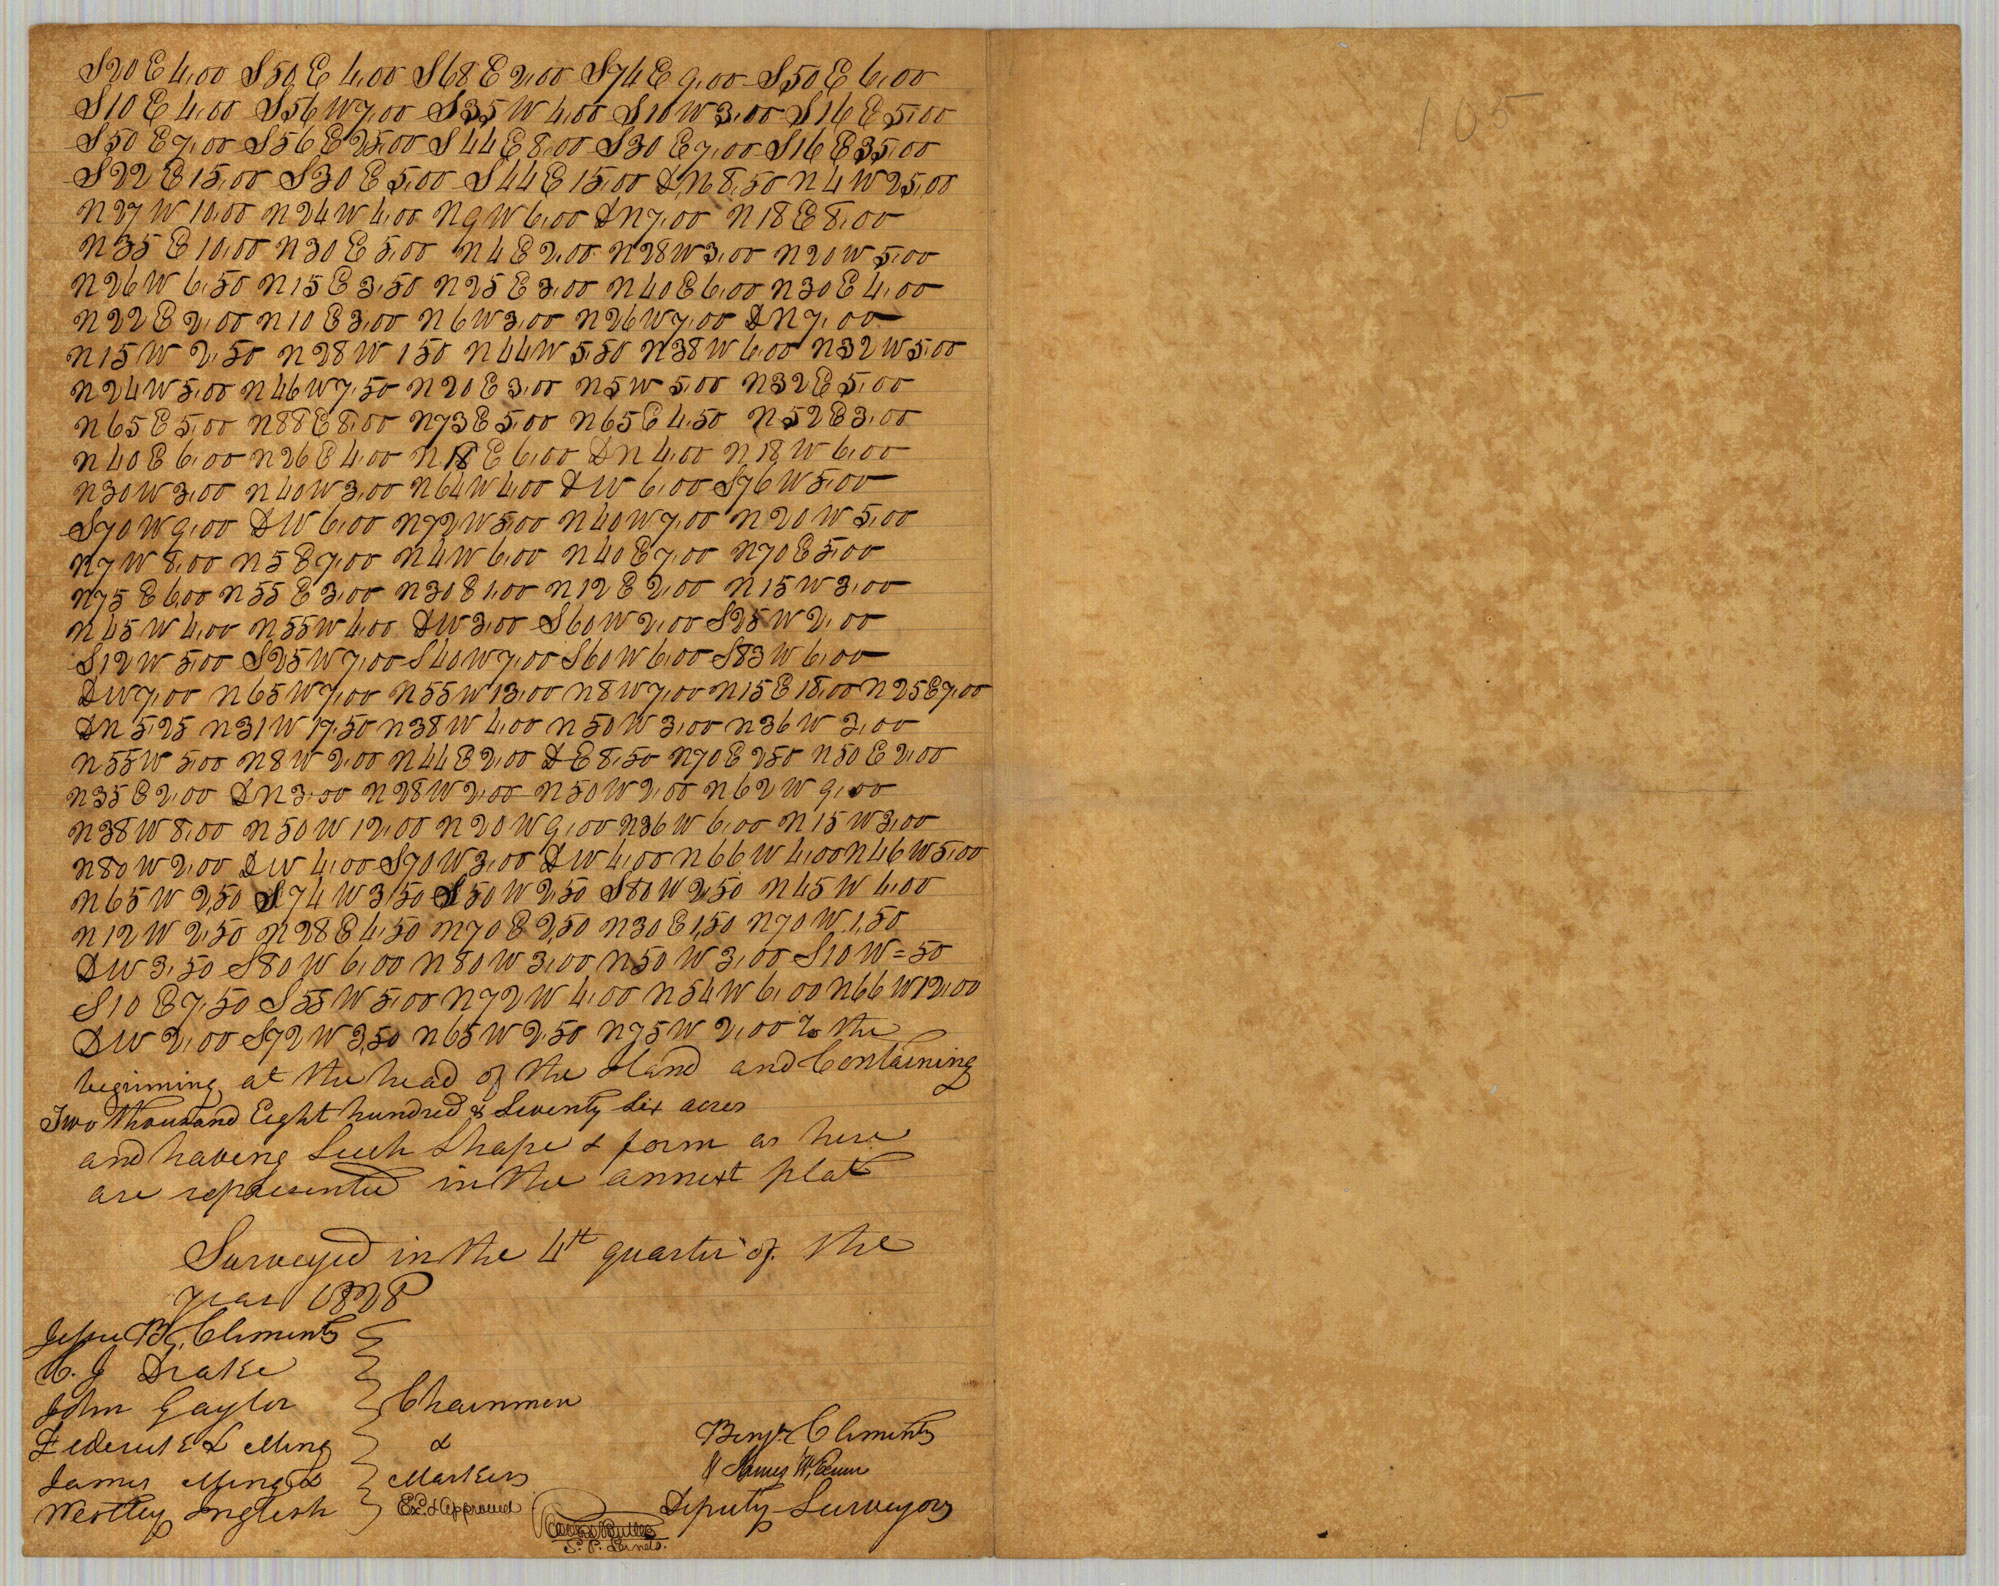 S20E4,00 S50E4,00 S68E2,00 S74E9,00 S50E6,00
S10E4,00 S56W7,00 S35W4,00 S10W3,00 S16E5,00
S50E7,00 S56E25,00 S44E8,00 S30E7,00 S16E35,00
S22E15,00 S30E5,00 S44E15,00 DN8,50 N4W25,00
N27W10,00 N24W4,00 N9W6,00 DN7,00 N18E8,00
N35E10,00 N30E5,00 N4E2,00 N28W3,00 N20W5,00
N26W6,50 N15E3,50 N25E3,00 N40E6,00 N30E4,00
N22E2,00 N10E3,00 N6W3,00 N26W7,00 DN7,00
N15W2,50 N28W150 N44W5,50 N38W6,00 N32W5,00
N24W5,00 N46W7,50 N20E3,00 N5W5,00 N32E5,00
N65E5,00 N88E8,00 N73E5,00 N65E4,50 N52E3,00
N40E6,00 N26E4,00 N18E6,00 DN4,00 N18W6,00
N30W3,00 N40W3,00 N64W4,00 DW6,00 S76W5,00
S70W9,00 DW6,00 N72W5,00 N40W7,00 N20W5,00
N7W8,00 N5E7,00 N4W6,00 N40E7,00 N70E5,00
N75E6,00 N55E3,00 N30E1,00 N12E2,00 N15W3,00
N45W4,00 N55W4,00 DW3,00 S60W2,00 S25W2,00
S12W5,00 S25W7,00 S40W7,00 S60W6,00 S83W6,00
DW7,00 N65W7,00 N55W13,00 N8W7,00 N15E18,00 N25E7,00
DN5,25 N31W17,50 N38W4,00 N50W3,00 N36W3,00
N55W5,00 N8W2,00 N44E2,00 DE8,50 N70E250 N50E2,00
N35E2,00 DN3,00 N28W2,00 N50W2,00 N62W9,00
N38W8,00 N50W12,00 N20W9,00 N36W6,00 N15W3,00
N80W2,00 DW4,00 S70W3,00 DW4,00 N66W4,00 N46W5,00
N65W2,50 S74W3,50 S50W2,50 S80W2,50 N45W4,00
N12W2,50 N28E4,50 N70E2,50 N30E1,50 N70W1,50
DW3,50 S80W6,00 N80W3,00 N50W3,00 S10W=50
S10E7,50 S55W5,00 N72W4,00 N54W6,00 N66W12,00
DW2,00 S72W3,50 N65W2,50 N75W2,00 To the
beginning at the head of the Island and Containing
Two thousand Eight hundred & Seventy Six acres
and having Such Shape & form as here
are represented in the annext plat
Surveyed in the 4th quarter of the
year 1828
Jesse B. Clements
C. J Drake
John Gaylor
Chainmen
Frederick L Ming
&
James Ming
Markers
Westley Inglish
Ex. & Approved
S. P. Lands.
Benj. Clements
& James W. Exum
Deputy Surveyors
105